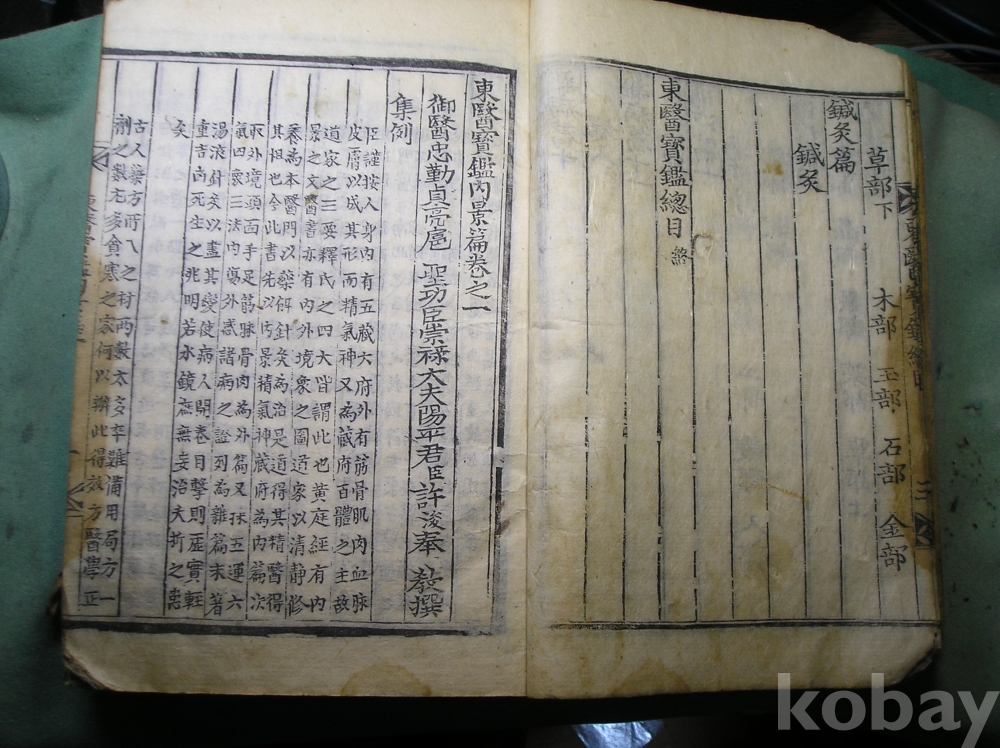 東醫寶鑑總目 二
草部下 木部 玉部 石部 金部
鍼灸篇
鍼灸
東醫寶鑑總目 終
東醫寶鑑內景篇卷之一
御醫忠勤貞亮扈 聖功臣崇祿大夫陽平君臣許浚奉 敎撰
集例
臣謹按人身內有五藏六府外有筋骨肌肉血脉
皮膚以成其形而精氣神又為藏府百體之主故
道家之三要釋氏之四大皆謂此也黃庭經有內
景之文醫書亦有內外境象之圖道家以清靜修
養為本醫門以藥餌針灸為治是道得其精醫得
其粗也今此書先以內景精氣神藏府為內篇次
取外境頭面手足筋脉骨肉為外篇又採五運六
氣四象三法內傷外感諸病之證列為雜篇末著
湯液針灸以盡其變使病人開卷目擊則虛實輕
重吉凶死生之兆明若水鏡庶無妄治夭折之患
矣
古人藥方所入之材兩數太多卒難備用局方一
劑之數尤多貧寒之家何以辦此得效方醫學正
kobay